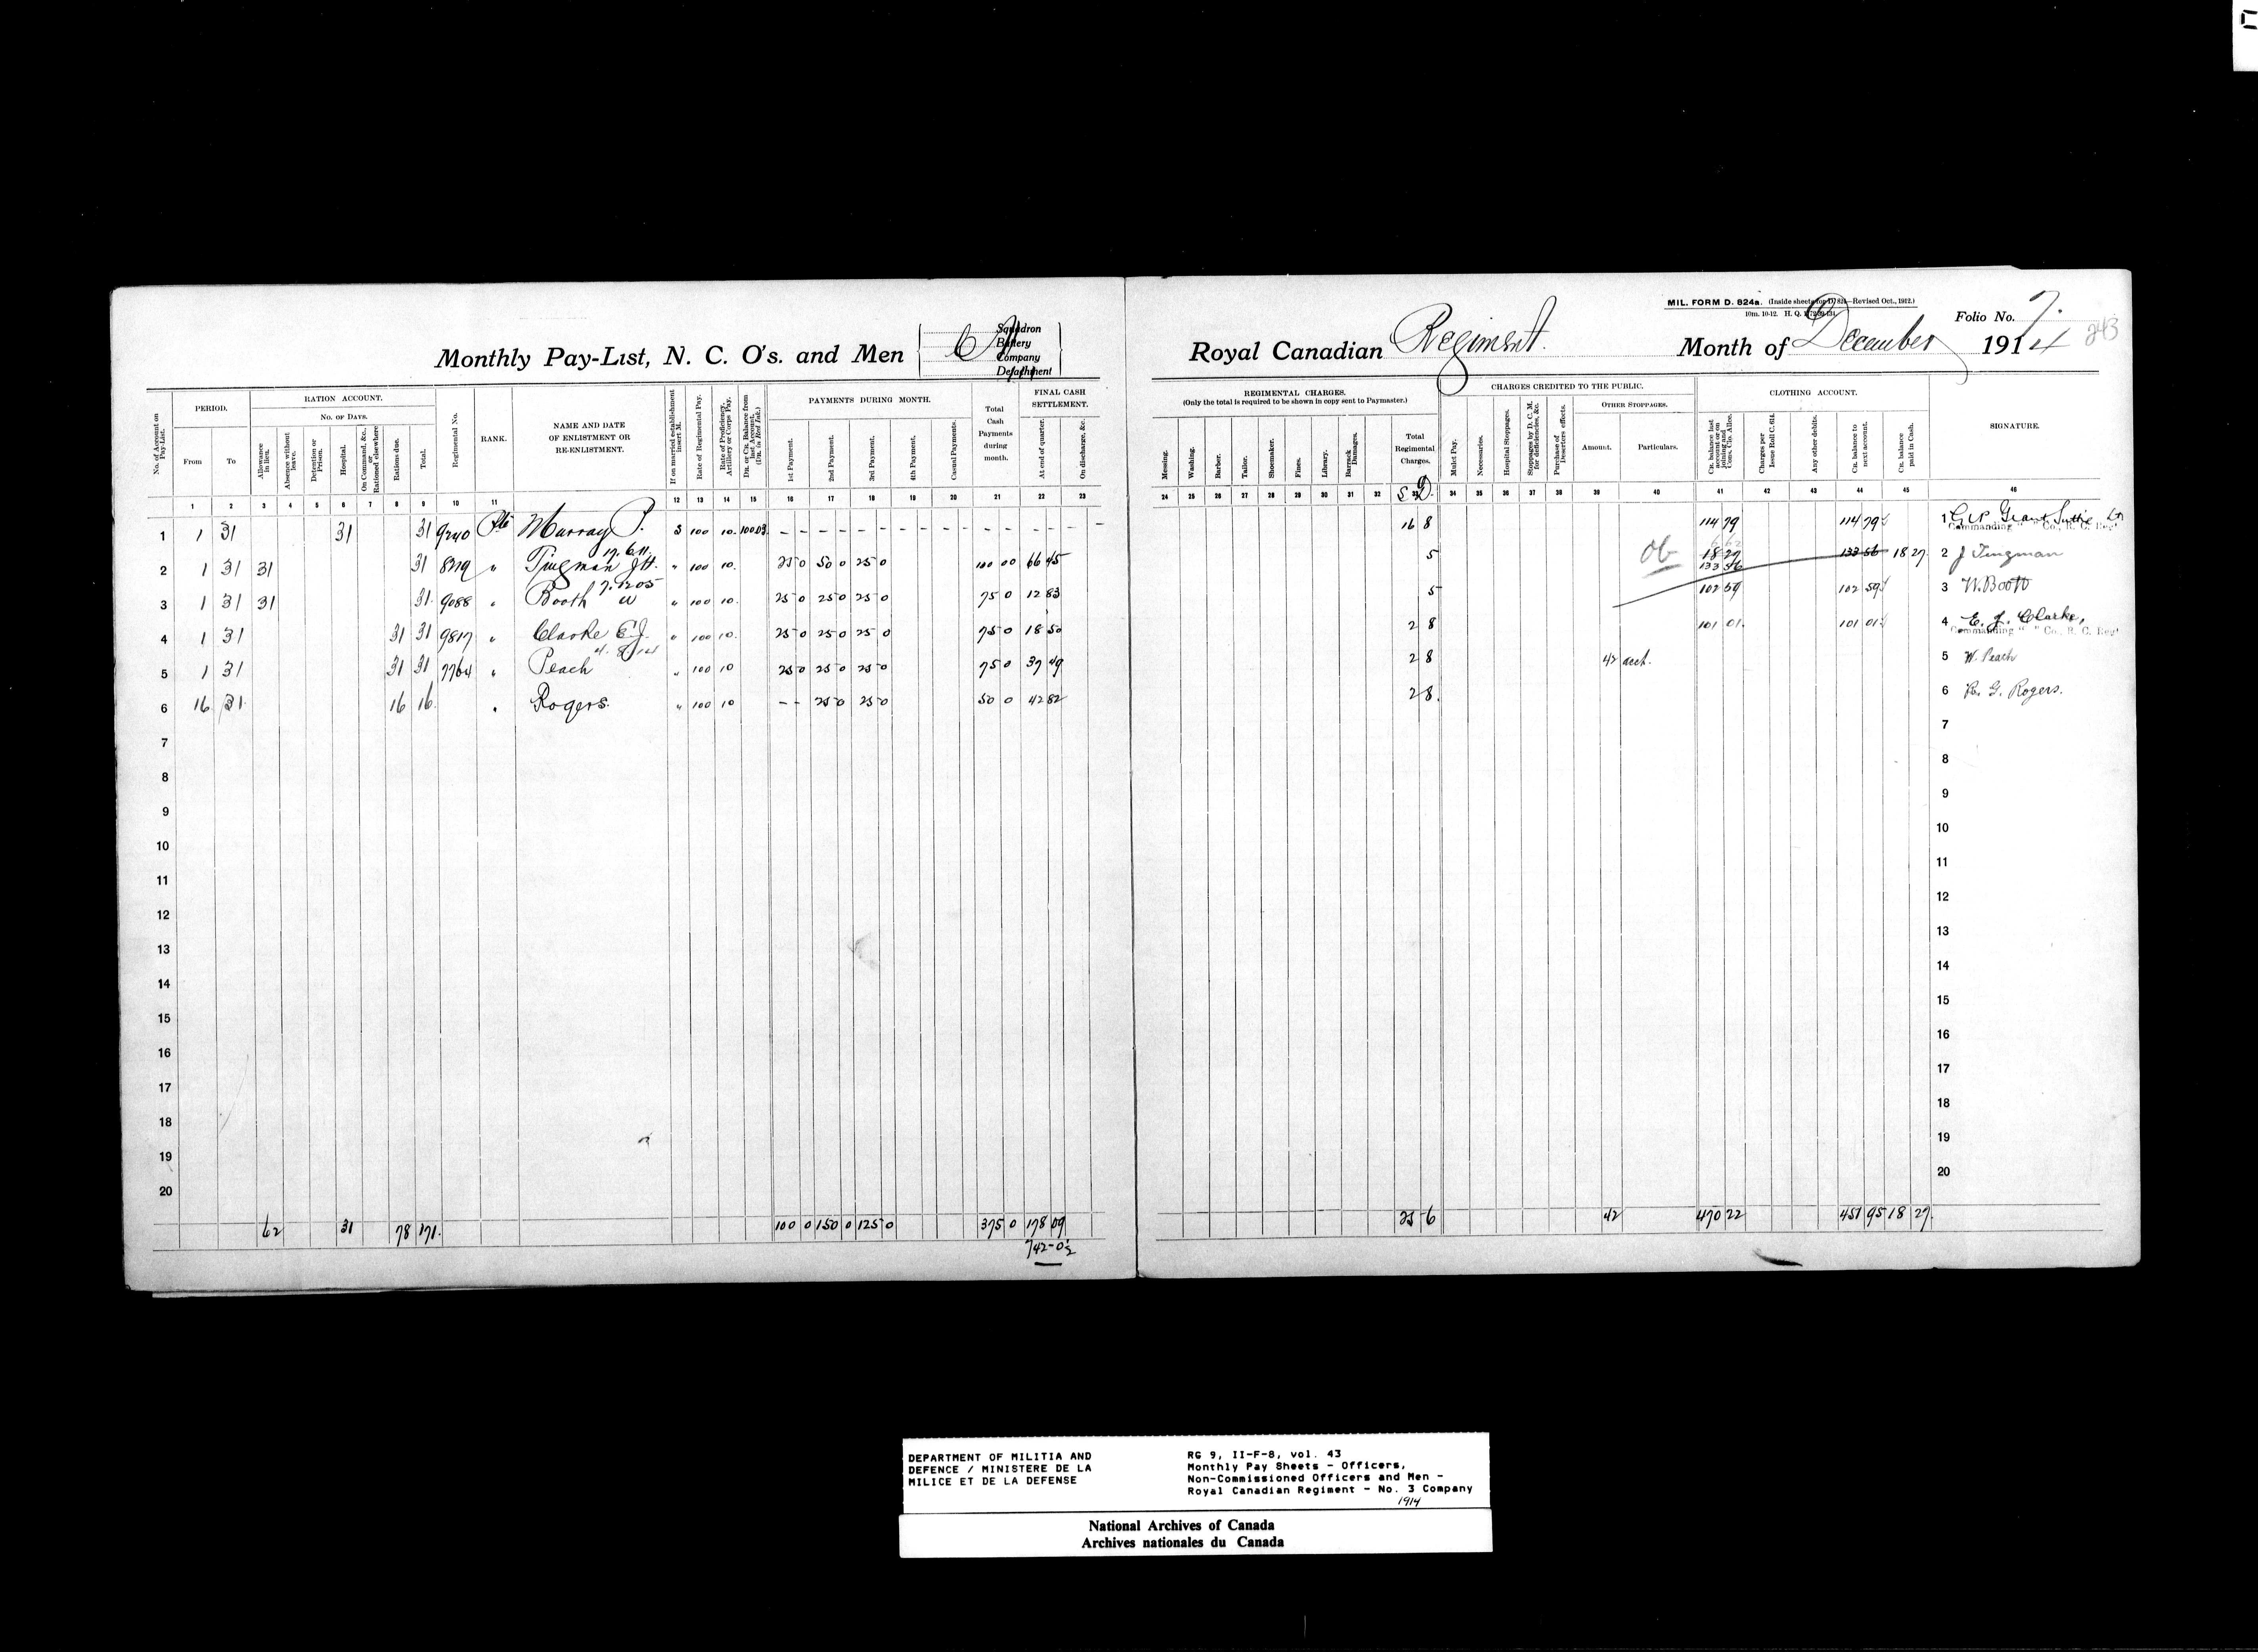 MIL. FORM D. 824a. (Inside sheets for D. 824—Revised Oct., 1912.)
10m. 10-12. H. Q.
Folio No. 7.
243
Monthly Pay-List, N. C. O's. and Men
Squadron
Battery
Company
Detachment
Royal Canadian Regiment.
Month of December 1914
No. of Account on Pay-List.
PERIOD.
From
To
RATION ACCOUNT.
No. of Days.
Allowance in lieu.
Absence without leave.
Detention or Prison.
Hospital.
On Command, &c., or Rationed elsewhere
Rations due.
Total.
Regimental No.
RANK.
NAME AND DATE
OF ENLISTMENT OR
RE-ENLISTMENT.
If on married establishment insert M.
Rate of Regimental Pay.
Rate of Proficiency, Artillery or Corps Pay.
DR. or CR. Balance from last Account. (DR. in Red Ink.)
PAYMENTS DURING MONTH.
1st Payment.
2nd Payment.
3rd Payment.
4th Payment.
Casual Payments.
Total
Cash
Payments
during
month.
FINAL CASH
SETTLEMENT.
At end of quarter.
On discharge, &c.
REGIMENTAL CHARGES.
(Only the total is required to be shown in copy sent to Paymaster.)
Messing.
Washing.
Barber.
Tailor.
Shoemaker.
Fines.
Library.
Barrack Damages.
Total
Regimental
Charges.
CHARGES CREDITED TO THE PUBLIC.
Mulct Pay.
Necessaries.
Hospital Stoppages.
Stoppages by D. C. M. for deficiencies, &c.
Purchase of Deserters effects.
OTHER STOPPAGES.
Amount.
Particulars.
CLOTHING ACCOUNT.
CR. balance last account or on joining and Cons. Clo. Allce.
Charges per Issue Roll C. 614.
Any other debits.
CR. balance to next account.
CR. balance paid in Cash.
SIGNATURE.
1 2 3 4 5 6 7 8 9 10 11 12 13 14 15 16 17 18 19 20 21 22 23
24 25 26 27 28 29 30 31 32 33 34 35 36 37 38 39 40 41 42 43 44 45 46
1 1 31 31 31 9240 Pte Murray P. S 100 10. 100 03 - - - - - - - - - - - - - 16 8 114 79 114 79 1
Commanding " " Co., R. C. Regt
17.6.11.
2 1 31 31 31 8219 " Tingman J H. " 100 10. 25 0 50 0 25 0 100 00 66 45 5 18 27 133 56 133 56 18 27 2 J Tingman
7.12.05
3 1 31 31 31 9088 " Booth W " 100 10. 25 0 25 0 25 0 75 0 12 83 5 102 59 102 59 3 W. Booth
4 1 31 31 31 9817 " Clarke E.J. " 100 10. 25 0 25 0 25 0 75 0 18 50 2 8 101 01 101 01 4 E. J. Clarke,
Commanding " " Co., R. C. Regt
4.8.14
5 1 31 31 31 7764 " Peach " 100 10 25 0 25 0 25 0 75 0 37 49 2 8 42 acct. 5 W. Peach
6 16 31 16 16 " Rogers. " 100 10 - - 25 0 25 0 50 0 42 82 2 8. 6 R. G. Rogers.
7 7
8 8
9 9
10 10
11 11
12 12
13 13
14 14
15 15
16 16
17 17
18 18
19 19
20 20
62 31 78 171. 100 0 150 0 125 0 375 0 178 09 25 6 42 470 22 451 95 18 27.
DEPARTMENT OF MILITIA AND
DEFENCE / MINISTERE DE LA
MILICE ET DE LA DEFENSE
RG 9, II-F-8, vol. 43
Monthly Pay Sheets - Officers,
Non-Commissioned Officers and Men -
Royal Canadian Regiment - No. 3 Company
1914
National Archives of Canada
Archives nationales du Canada